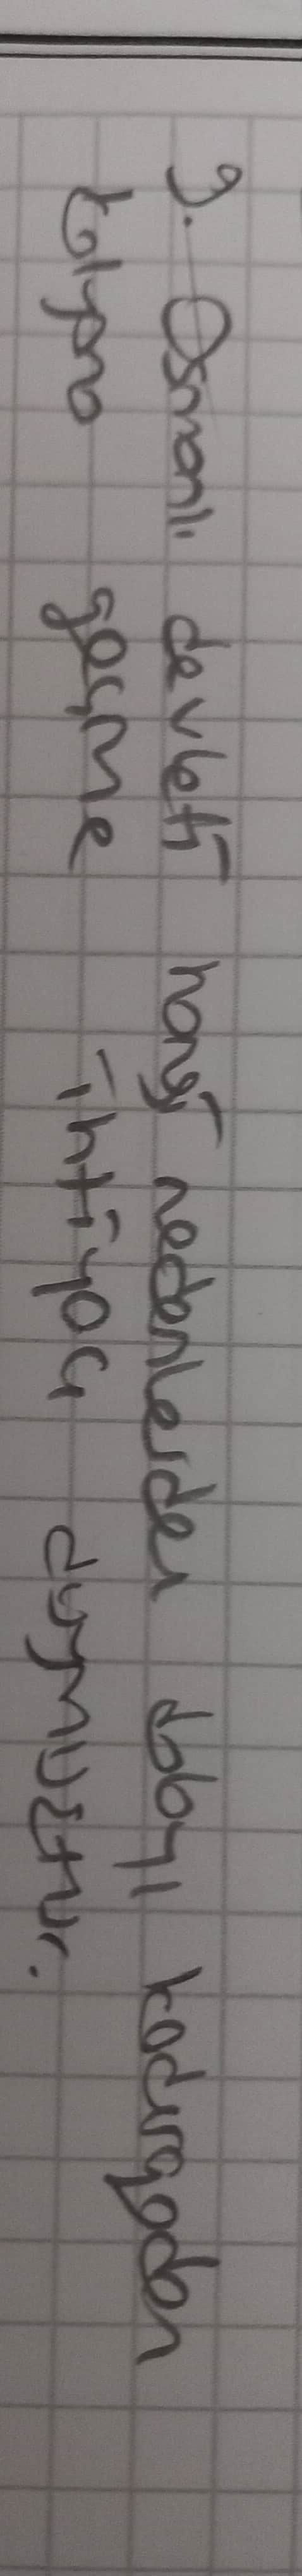 9. Osmanlı devleti hangi nedenlerden dolayı kadırgadan
kalyona geçme ihtiyacı duymuştur.